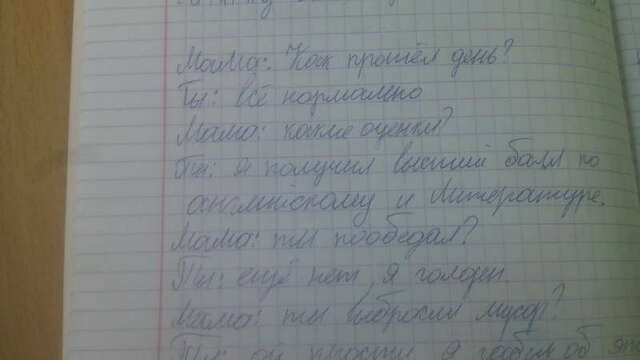 Мама: Как прошёл день?
Ты: всё нормально
Мама: какие оценки?
Ты: я получил высший балл по
английскому и литературе.
Мама: ты пообедал?
Ты: ещё нет, я голоден.
Мама: ты выбросил мусор?
Ты: ой прости я забыл об эт